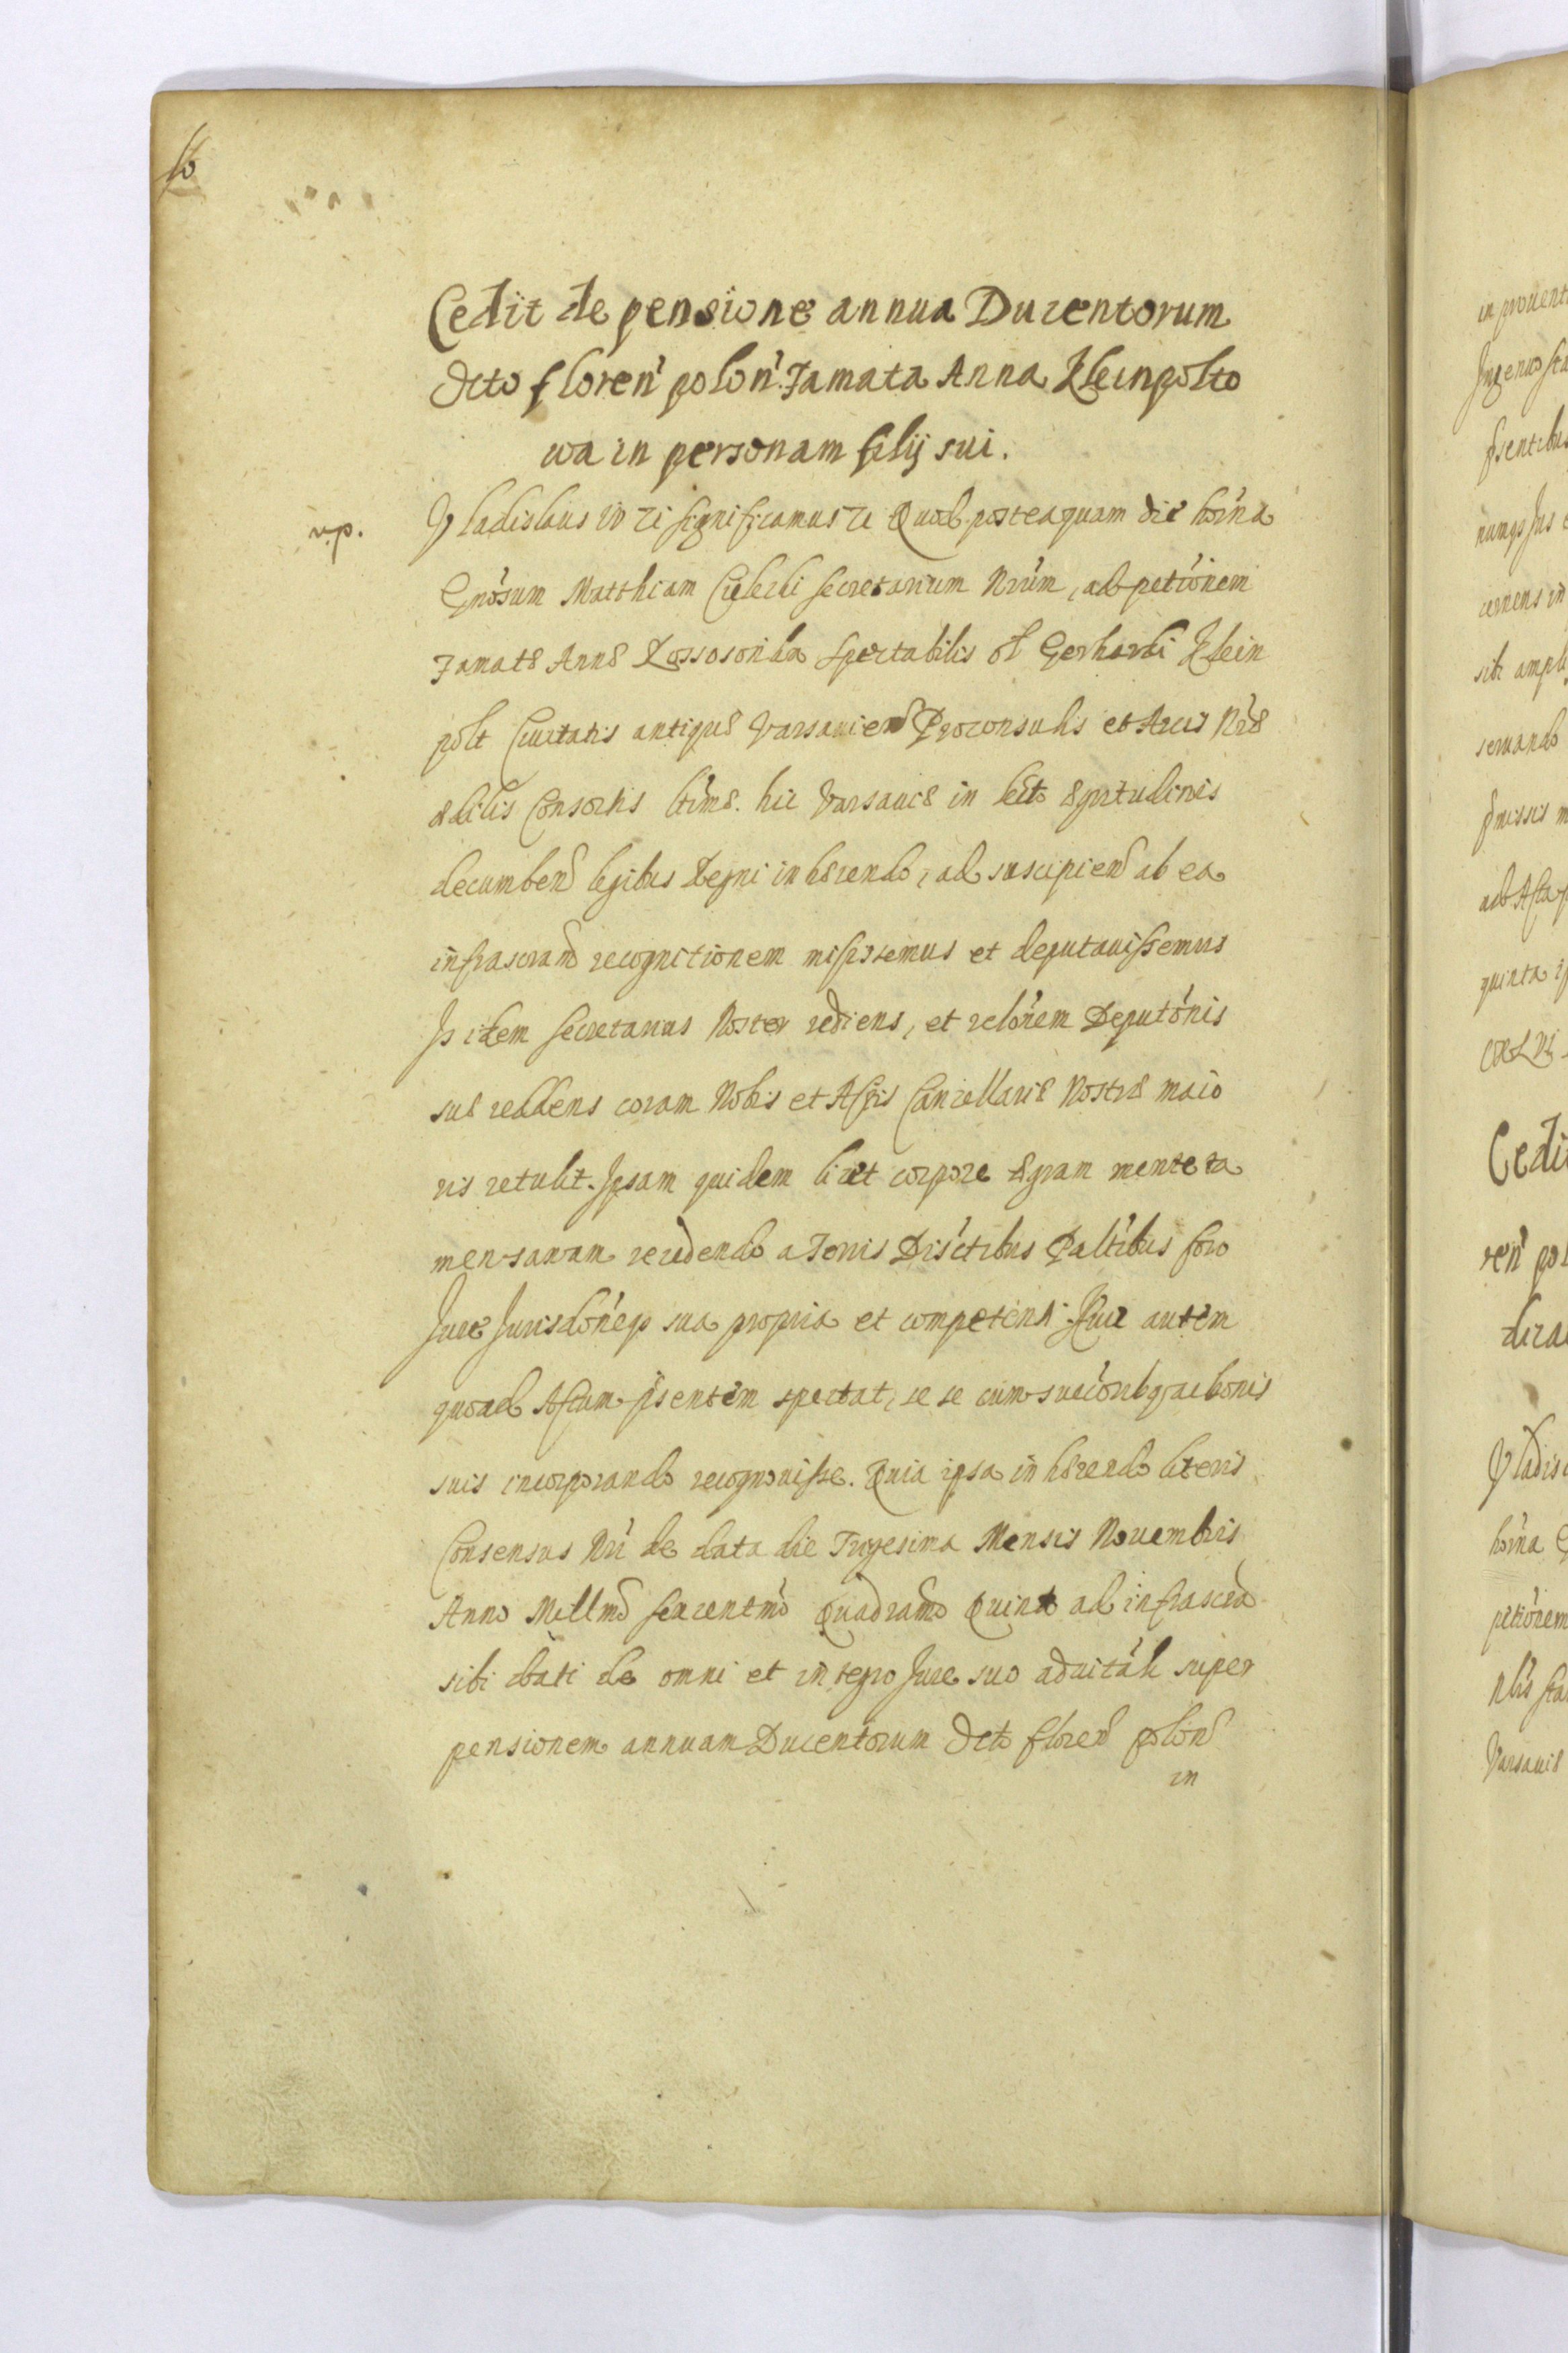 16
Cedit de pensione annua Ducentorum
Octo floren' polon'. Famata Anna Kleinpolto
wa in personam filij sui.
v.p.
Vladislaus IV etc significamus etc Quod posteaquam die horna
Gnosum Matthiam Secretarium Nrum, ad petionem
Famatæ Annæ Spectabilis ol Gerhardi Klein
polt Civitatis antiquæ Varsavien Proconsulis et Arcis Nræ
Consortis ltimæ. hic Varsaviæ in lecto ægritudinis
decumben legibus Regni inhærendo, ad suscipien ab ea
infrascrand recognitionem misissemus et deputavissemus
Is idem Secretarius Noster rediens, et relonem Deputonis
suæ reddens coram Nobis et Actis Cancellariæ Nostræ maio
ris retulit. Ipsam quidem licet corpore ægram mente ta
men sanam recedendo a Terris Disctibus Paltibus foro
Jure Jurisdoneq sua propria et competenti. Huic autem
quo ad Actum psentem spectat, se se cum succoribq ac bonis
suis incorporando recognovisse. Quia ipsa inhærendo literis
Consensus Nri de data die Trigesima Mensis Novembris
Anno Mellmo sexcentmo Quadramo Quinto ad infrascrd
sibi dati de omni et integro Jure suo advitali super
pensionem annuam Ducentorum Octo floren polon
in
in provent
Ingenio
psentibus
numqs Jus
cernens in
sibi ampli
servando
pmissis m
ad Acta p
quinta ip
Cedi
ren' pol
Vladis
horna G
petionem
Varsaviæ